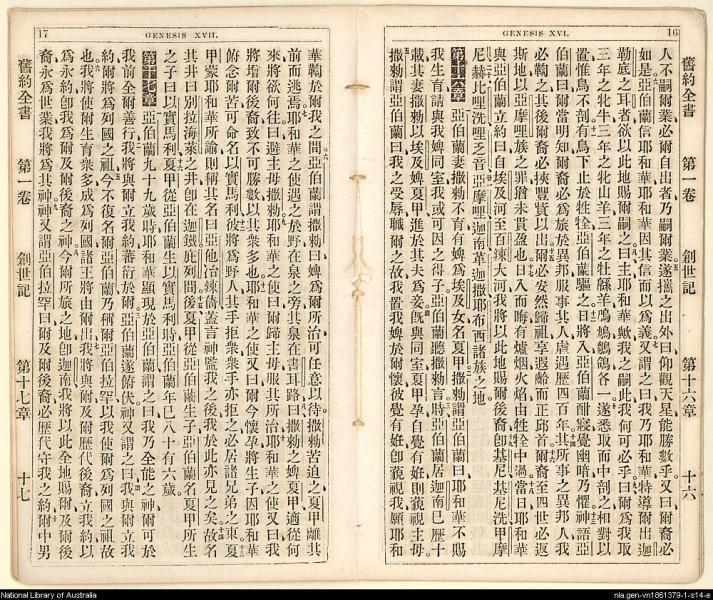 GENESIS XVI.
16
舊約全書 第一卷 創世記 第十六章 十六
人不嗣爾業必爾自出者乃嗣爾業遂攜之出外曰仰觀天星能勝數乎又曰爾裔必
如是亞伯蘭信耶和華耶和華因其信而以爲義又謂之曰我乃耶和華特導爾出迦
勒底之耳者欲以此地賜爾嗣之曰主耶和華歟我之嗣此我何可必乎曰爾爲我取
三年之牝牛三年之牝山羊三年之牡緜羊鳲鳩鶵鴿各一遂悉取而中剖之相對以
置惟鳥不剖有鳥下止於牲亞伯蘭驅之日將入亞伯蘭酣寢覺幽暗乃懼神語亞
伯蘭曰爾當明知爾裔必爲旅於異邦服事其人虐遇歷四百年其所事之異邦人我
必鞫之其後爾裔必挾豐貲以出爾必安然歸祖享遐齡而正邱首爾裔至四世必返
斯地以亞摩哩族之罪猶未貫盈也日入而晦有爐烟火焰由牲中過當日耶和華
與亞伯蘭立約曰自埃及河至百辣大河我將以此地賜爾後裔卽基尼基尼洗甲摩
尼赫比哩洗哩乏音亞摩哩迦南革迦撒耶布西諸族之地
第十六章 亞伯蘭妻撒勑不育有婢爲埃及女名夏甲撒勑謂亞伯蘭曰耶和華不賜
我生育請與我婢同室我或可因之得子亞伯蘭聽撒勑言時亞伯蘭居迦南已歷十
載其妻撒勑以埃及婢夏甲進於其夫爲妾旣與同室夏甲孕自覺有姙則藐視主母
撒勑謂亞伯蘭曰我之受辱職爾之故我置我婢於爾懷彼覺有姙卽藐視我願耶和
17
GENESIS XVII.
華鞫於爾我之間亞伯蘭謂撒勑曰婢爲爾所治可任意以待撒勑苦迫之夏甲離其
前而逃焉耶和華之使遇之於野在泉之旁其泉在書耳路曰撒勑之婢夏甲適從何
來將欲何往曰避主母撒勑耶和華之使曰爾歸主母服其所治耶和華之使又曰我
將增爾後裔致不可勝數以其衆多也耶和華之使又曰爾今懷孕將生子因耶和華
俯念爾苦可命名以實馬利彼將爲野人其手拒衆衆手亦拒之必居諸兄弟之東夏
甲蒙耶和華所諭則稱其名曰亞他冶蓋言神監我之後我於此亦見之矣故名
其井曰別拉海萊之井卽在迦鐵庇列間後夏甲從亞伯蘭生子亞伯蘭名夏甲所生
之子曰以實馬利夏甲從亞伯蘭生以實馬利時亞伯蘭年已八十有六歲
第十七章 亞伯蘭九十九歲時耶和華顯現於亞伯蘭謂之曰我乃全能之神爾可於
我前全爾善行我將與爾立我約蕃衍於爾亞伯蘭遂俯伏神又謂之曰我與爾立我
約爾將爲列國之祖今不復名爾亞伯蘭乃稱爾亞伯拉罕以我使爾爲列國之祖故
也我將使爾生育衆多成爲列國諸王將由爾出我將與爾及爾歷代後裔立我約以
爲永約卽我爲爾及爾後裔之神今爾所旅之地卽迦南我將以此全地賜爾及爾後
裔永爲世業我將爲其神神又謂亞伯拉罕曰爾及爾後裔必歷代守我之約爾中男
舊約全書 第一卷 創世記 第十七章 十七
National Library of Australia
nla.gen-vn1861379-1-s14-e